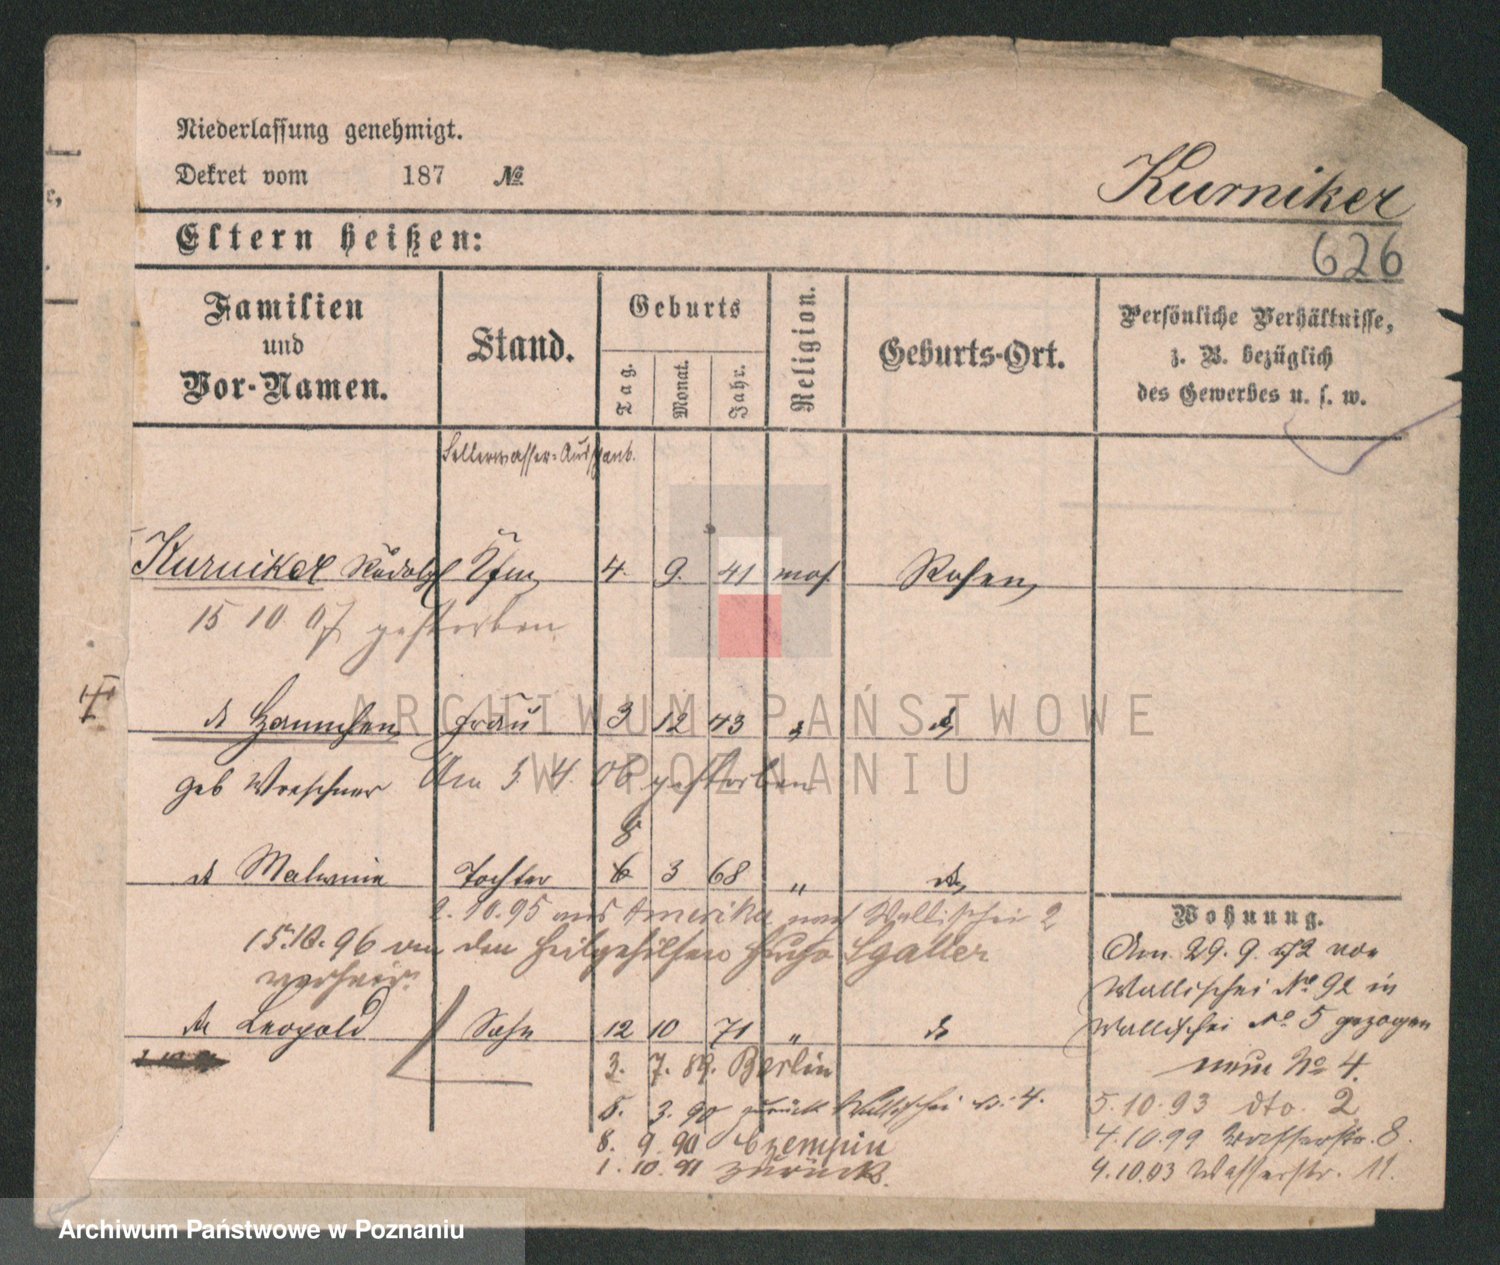 Niederlassung genehmigt.
Dekret vom 187 №
Kurniker
Eltern heißen:
626
Familien und Vor-Namen.
Stand.
Geburts
Tag.
Monat.
Jahr.
Religion.
Geburts-Ort.
Persönliche Verhältnisse,
z. B. bezüglich
des Gewerbes u. s. w.
Selterwasser-Ausschank.
Kurniker Rudolf Kfm 4. 9. 41 mos. Posen
15 10 07 gestorben
Hannchen Frau 3 12 43
geb Wreschner Am 3 4. 06 gestorben
8
Malwine Tochter 6 3 68 "
2.10.95 aus Amerika nach Wallischei 2
15.10.96 an den Heilgehilfen Hugo Sgaller
verheir.
Leopold Sohn 12 10 71 "
3. 7. 89. Berlin
5. 3. 90 zurück Wallischei 4.
8. 9. 90 Czempin
1. 10. 91 zurück.
Wohnung.
Am 29. 9. 72 von
Wallischei No 92 in
Wallischei No 5 gezogen
neue No 4.
5.10.93 dto. 2
4.10.99 Wasserstr. 8.
4.10.03 Wasserstr. 11.
ARCHIWUM PAŃSTWOWE
W POZNANIU
Archiwum Państwowe w Poznaniu